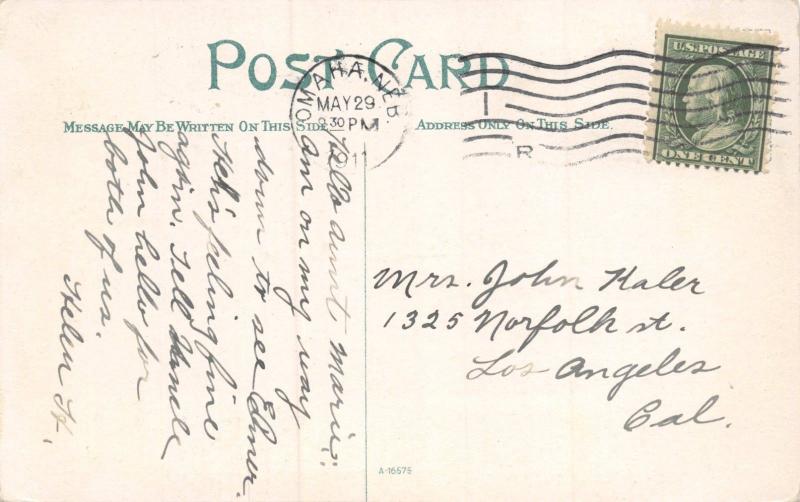 POST CARD
OMAHA, NEB.
MAY 29
8 30 PM
1911
1
R
U.S. POSTAGE
ONE CENT
MESSAGE MAY BE WRITTEN ON THIS SIDE
ADDRESS ONLY ON THIS SIDE.
Hello aunt Marie:
am on my way
down to see Elmer.
He's feeling fine
again. Tell Uncle
John hello for
both of us.
Helen H.
Mrs. John Kaler
1325 Norfolk st.
Los Angeles
Cal.
A-16575